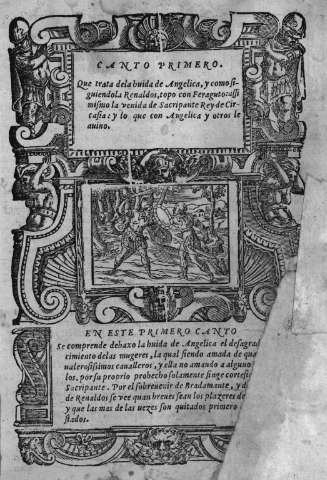 CANTO PRIMERO.
Que trata dela huida de Angelica, y como si-
guiendola Renaldos, topo con Feraguto: assi
mismo la venida de Sacripante Rey de Cir-
casia: y lo que con Angelica y otros le
auino.
EN ESTE PRIMERO CANTO
Se comprende debaxo la huida de Angelica el desagrad
cimiento delas mugeres, la qual siendo amada de qua
valerosissimos caualleros, y ella no amando a alguno
los, por su proprio prouecho solamente finge cortesi
Sacripante. Por el sobreuenir de Bradamante, y d
de Renaldos se vee quan breues sean los plazeres de
y que las mas de las vezes son quitados primero
stados.